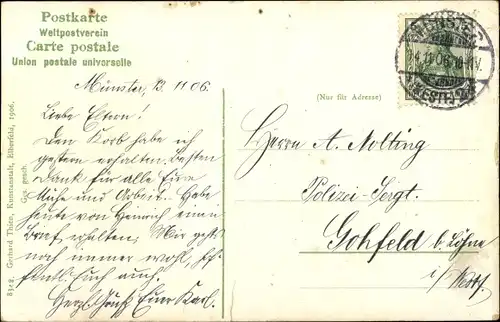 Postkarte
Weltpostverein
Carte postale
Union postale universelle
Münster, 13.11.06.
Liebe Eltern!
Den Korb habe ich
gestern erhalten. Besten
Dank für alle Eure
Mühe und Arbeit. Habe
heute von Heinrich einen
Brief erhalten. Mir geht's
noch immer wohl,
Euch auch.
Herzl. Euer Karl.
(Nur für Adresse)
Herrn A. Nolting
Polizei-Sergt.
Gohfeld b. Löhne
i/ Westf.
MÜNSTER
(WESTF.)
Gerhard Thien, Kunstanstalt, Elberfeld, 1906.
Ges. gesch.